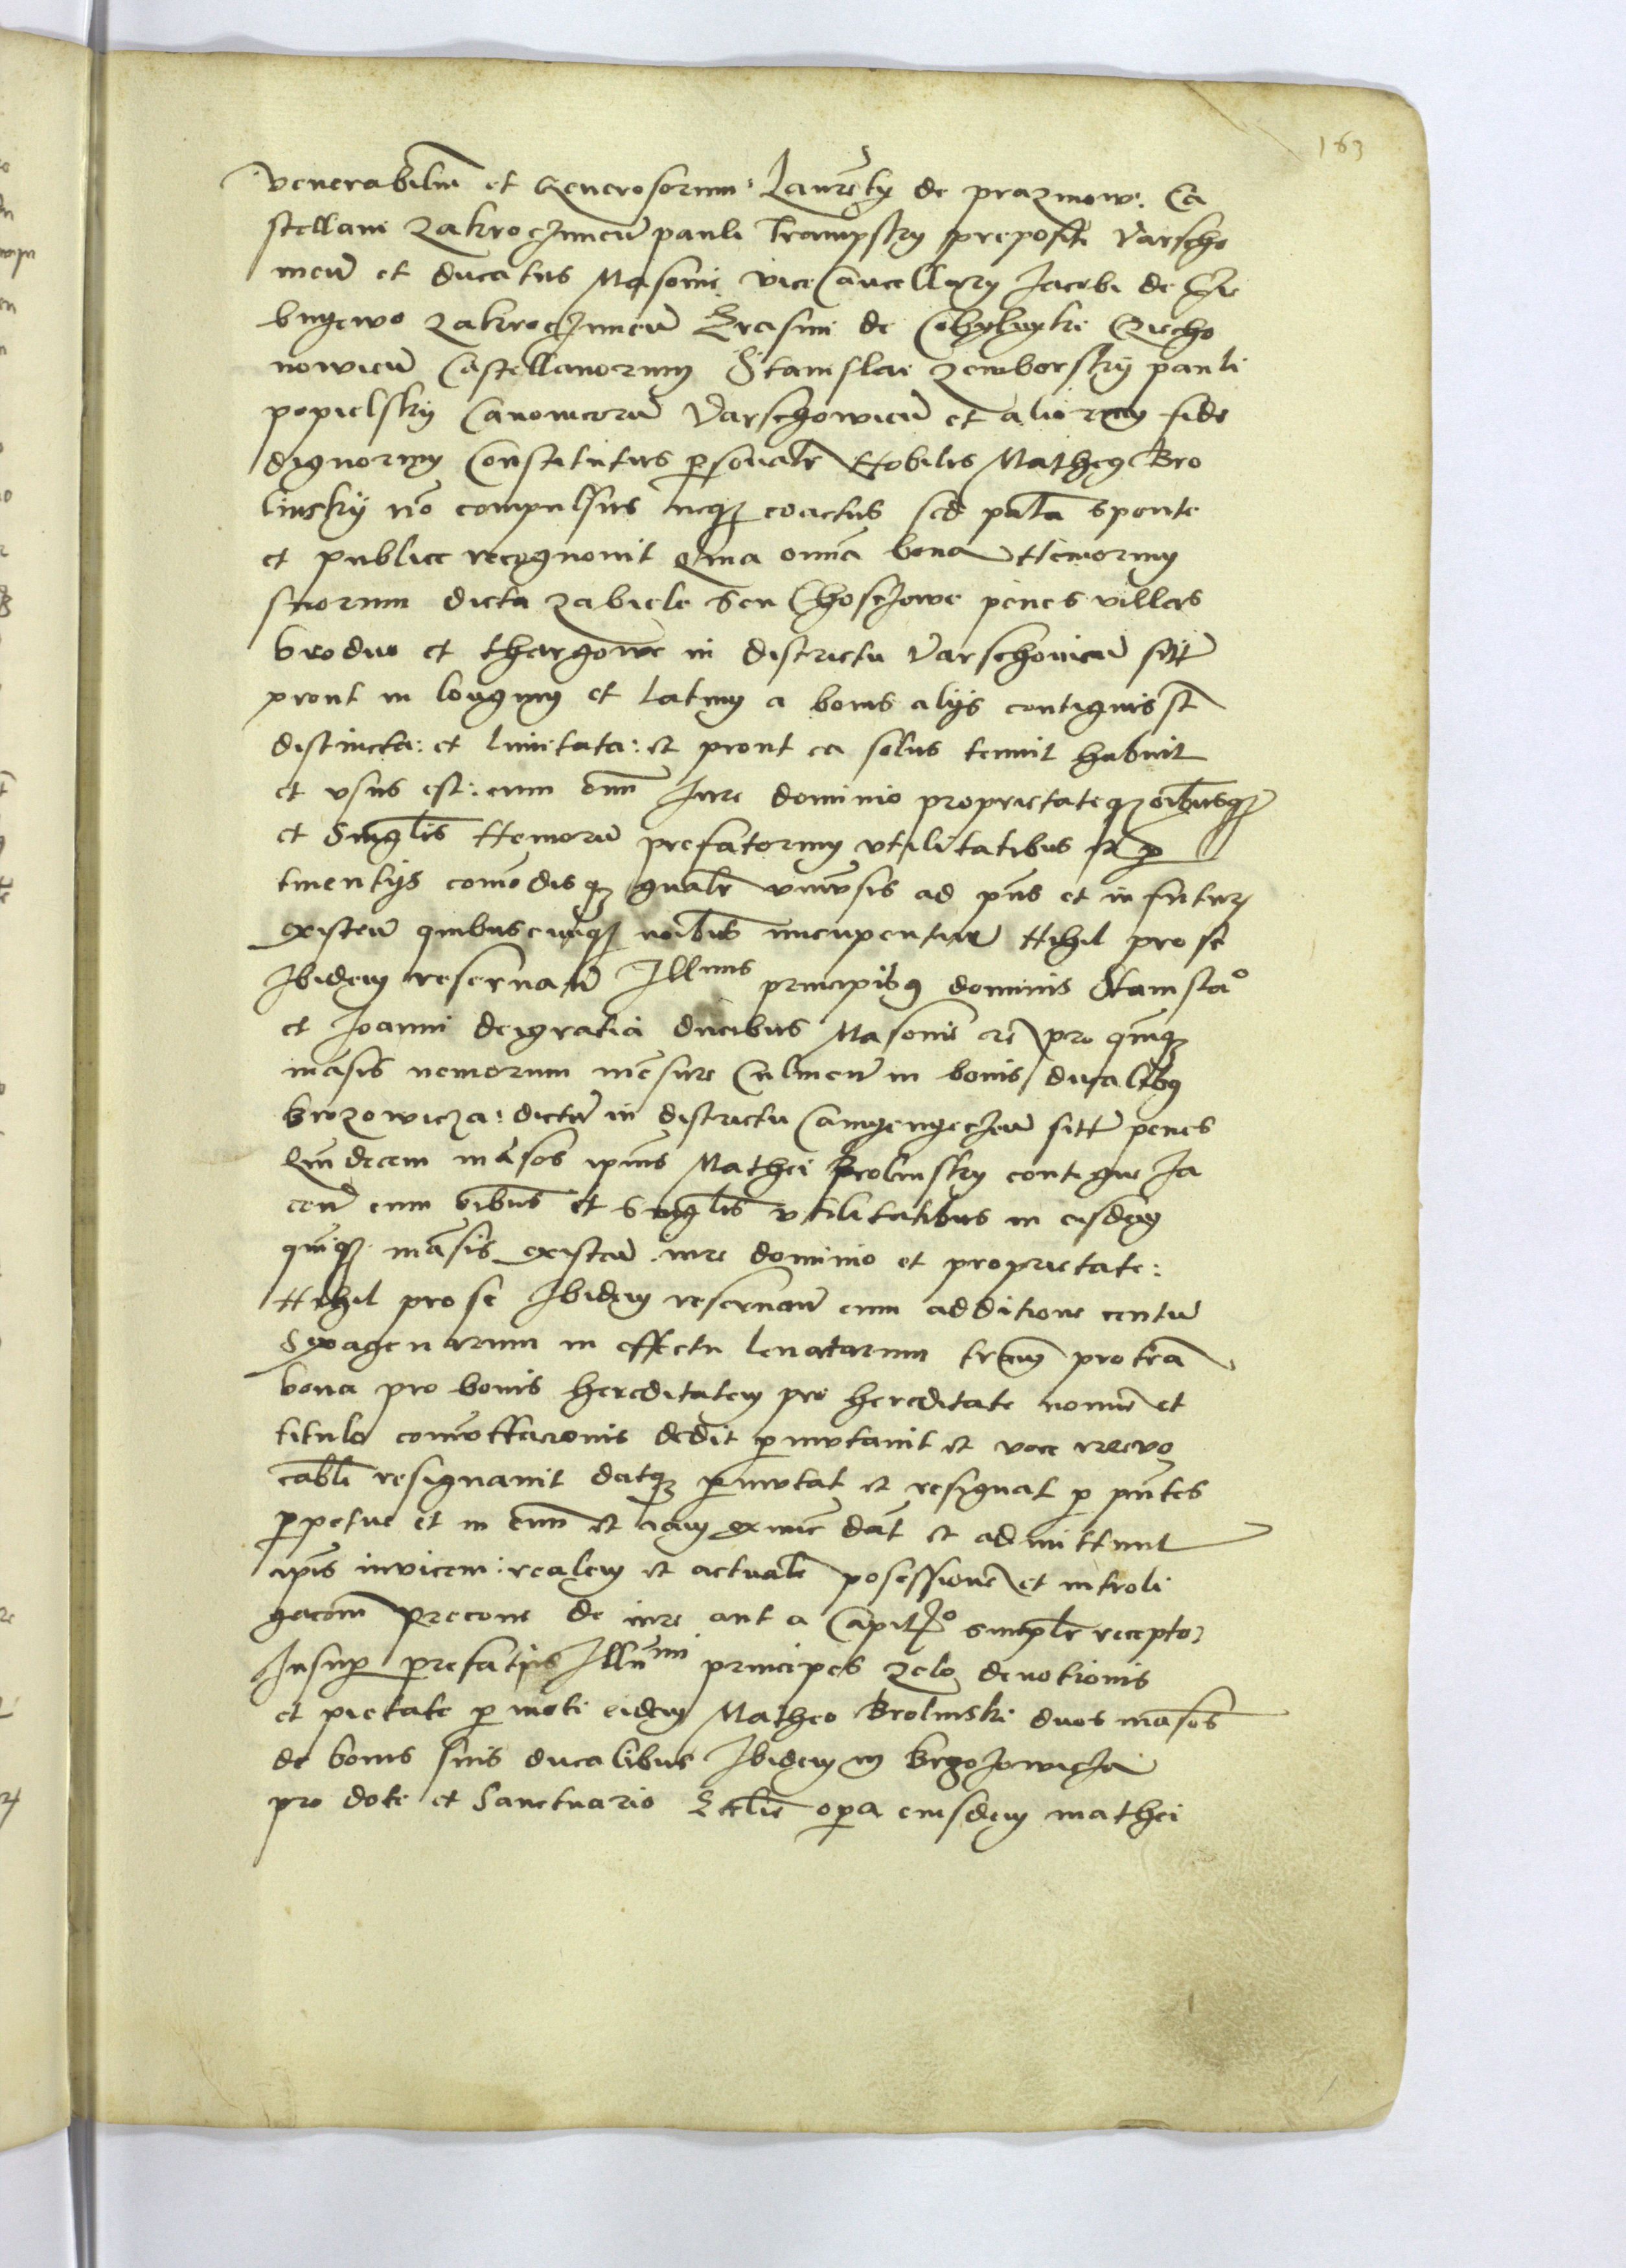 163
venerabiliu et Generosorum: Laurēty de prazmow: Ca
stellani Zakroczimeñ pauli Trampsky prepositi Varscho
nieñ et ducatus Masovie vice Cancellary Jacobi de
bnyewo Zakroczimeñ Erasmi de Czecho
nowieñ Castellanorum Stanislai Zemborsky pauli
popielsky Canonicorū Varschowieñ et aliorum fide
dignorum Constitutus psonalr Nobilis Matheg Bro
linsky nō compulsus neqz coactus sed palā sponte
et publice recognovit Quia omnia bona Nemorum
suorum dicta zabiele seu Choszczowe penes villas
brodno et thargowe in districtu Varschovieñ sitū
prout in longum et latum a bonis alijs contiguis st
distincta: et limitata: et prout ea solus tenuit habuit
et usus est: cum omī Jure dominio proprietateqz oībusqz
et Singlis Nemorū prefatorum utilitatibus et p
tinentijs comodisqz gnalr universis ad pñs et in futurū
existeñ quibuscunqz noībus nuncupentur Nihil pro se
Ibidem reservañ Illmis principibg dominis Stanislao
et Joanni dei gratia ducibus Masovie etc pro quinqz
māsis nemorum mēsure Culmeñ in bonis ducalibg
brzozowicza: dictū in districtu sitū penes
Quindecem māsos ipius Mathei Brolinsky contigue Ja
ceñ cum oībus et Singlis utilitatibus in eisdem
quinqz māsis existeñ iure dominio et proprietate:
Nihil pro se Ibidem reservañ cum additione centū
Sexagenarum in effectu levatarum trām pro trā
bona pro bonis hereditatem pro hereditate nomīe et
titulo dedit pmutavit et voce irrevo
cabl resignavit datqz pmutat et resignat p pñtes
ppetue et in evū et iam exnūc dāt et admittunt
ipīs invicem: realem et actualē posessionē et introli
gacōem precone de iure aut a Capitō simplr recepto
Insup prefatijs Illūmi principes zelo devotionis
et pietate pmoti eidem Matheo Brolinski duos māsos
de bonis suis ducalibus Ibidem in brzozowicza
pro dote et Sanctuario Ecclīe opa eiusdem mathei